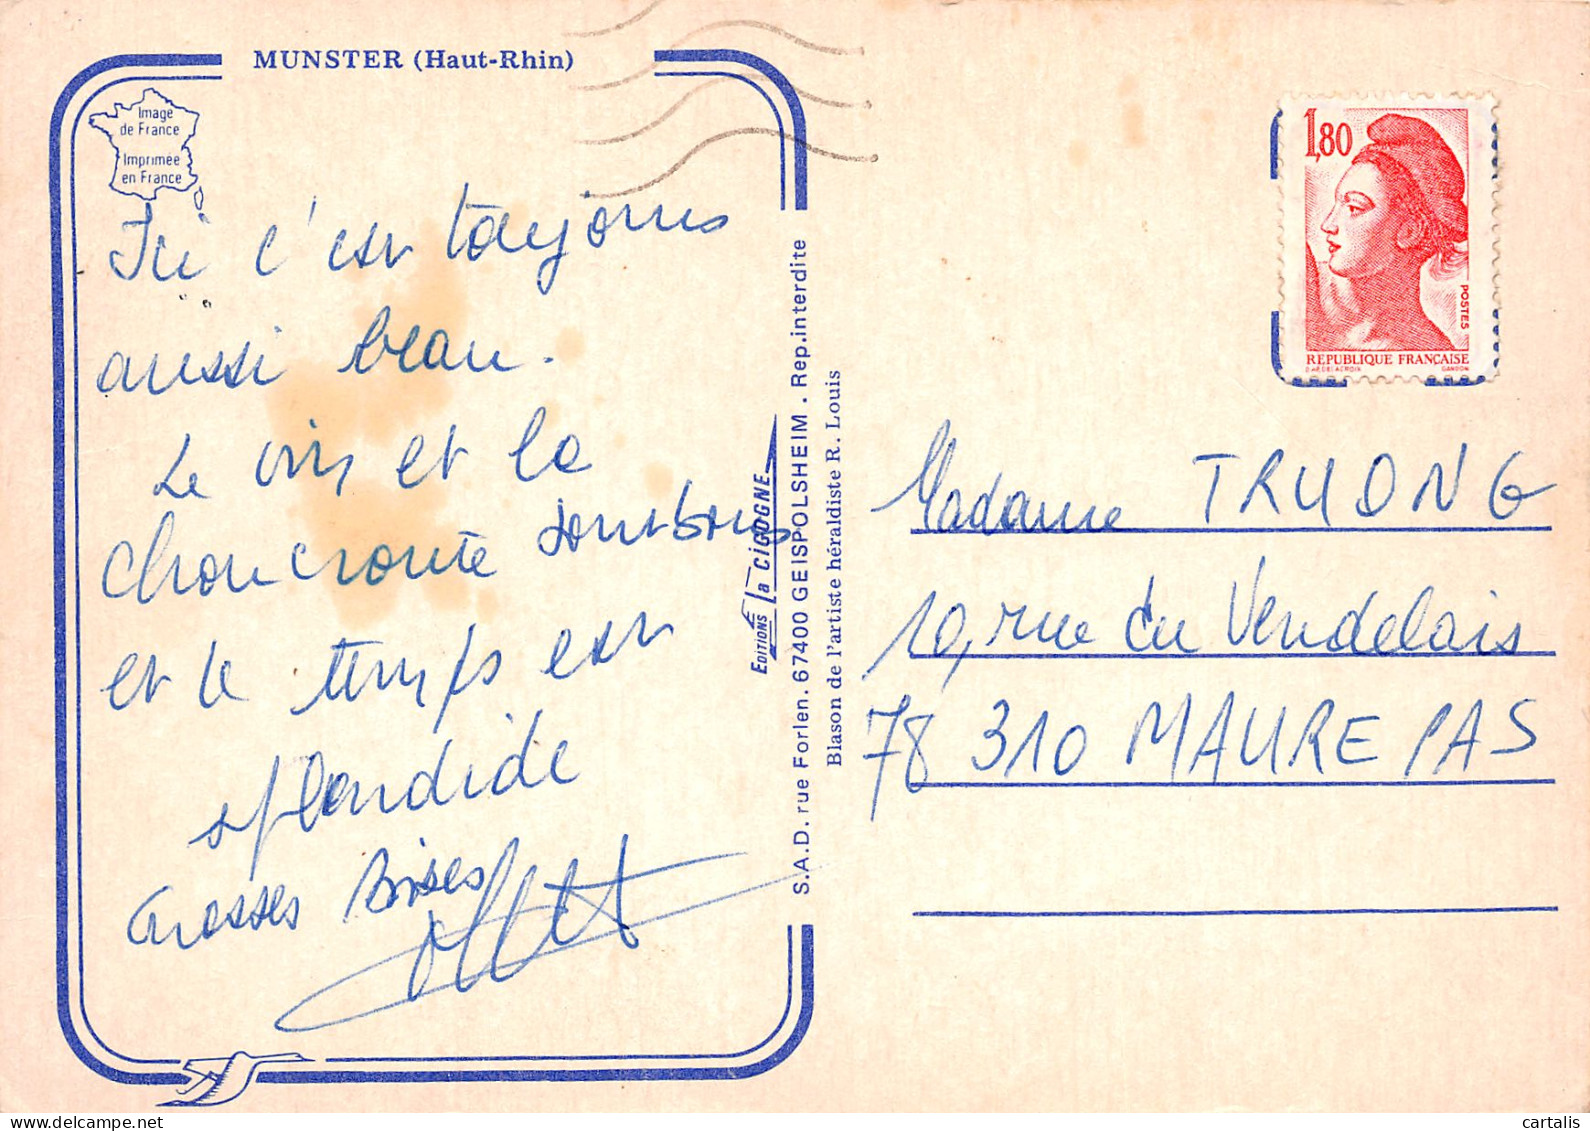 MUNSTER (Haut-Rhin)
Image
de France
Imprimée
en France
Ici c'est toujours
aussi beau.
Le vin et la
choucroute sont bons
et le temps est
splendide
Grosses Bises
EDITIONS la CIGOGNE
S.A.D. rue Forlen. 67400 GEISPOLSHEIM . Rep.interdite
Blason de l'artiste héraldiste R. Louis
1,80
POSTES
REPUBLIQUE FRANÇAISE
D'APRÈS DELACROIX GANDON
Madame TRUONG
10, rue du Vendelais
78 310 MAUREPAS
cartalis